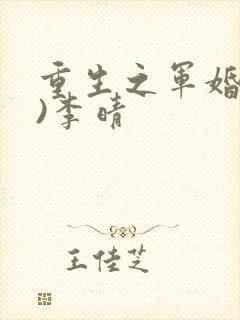 重生之军婚
)李晴
王佳芝